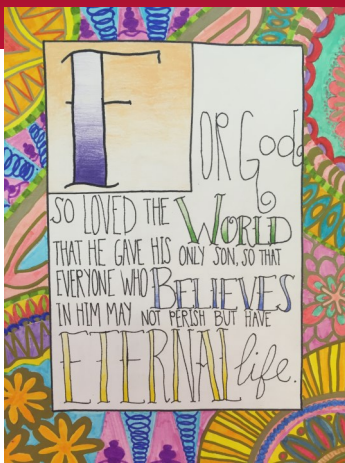 FOR God
SO LOVED THE WORLD
THAT HE GAVE HIS ONLY SON, SO THAT
EVERYONE WHO BELIEVES
IN HIM MAY NOT PERISH BUT HAVE
ETERNAL life.